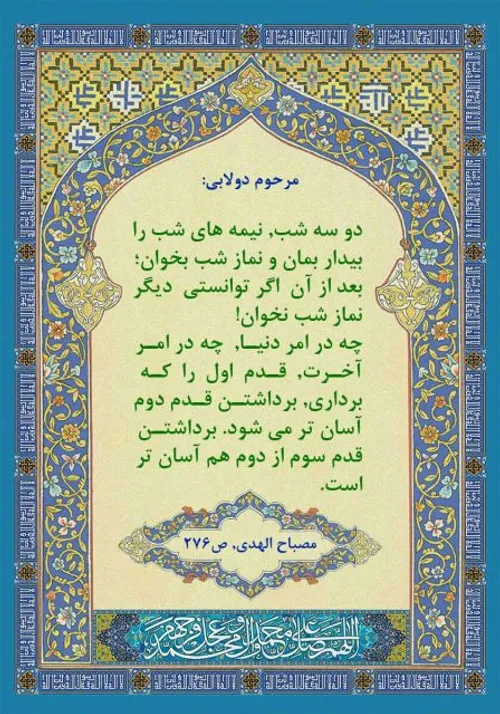 مرحوم دولابی:
دو سه شب, نیمه های شب را
بیدار بمان و نماز شب بخوان؛
بعد از آن اگر توانستی دیگر
نماز شب نخوان!
چه در امر دنیـا, چه در امـر
آخـرت, قـدم اول را کـه
برداری, برداشتـن قـدم دوم
آسان تر می شود. برداشتـن
قدم سوم از دوم هم آسان تر
است.
مصباح الهدی, ص۲۷۶
اللهم صل علی محمد و آل محمد و عجل فرجهم